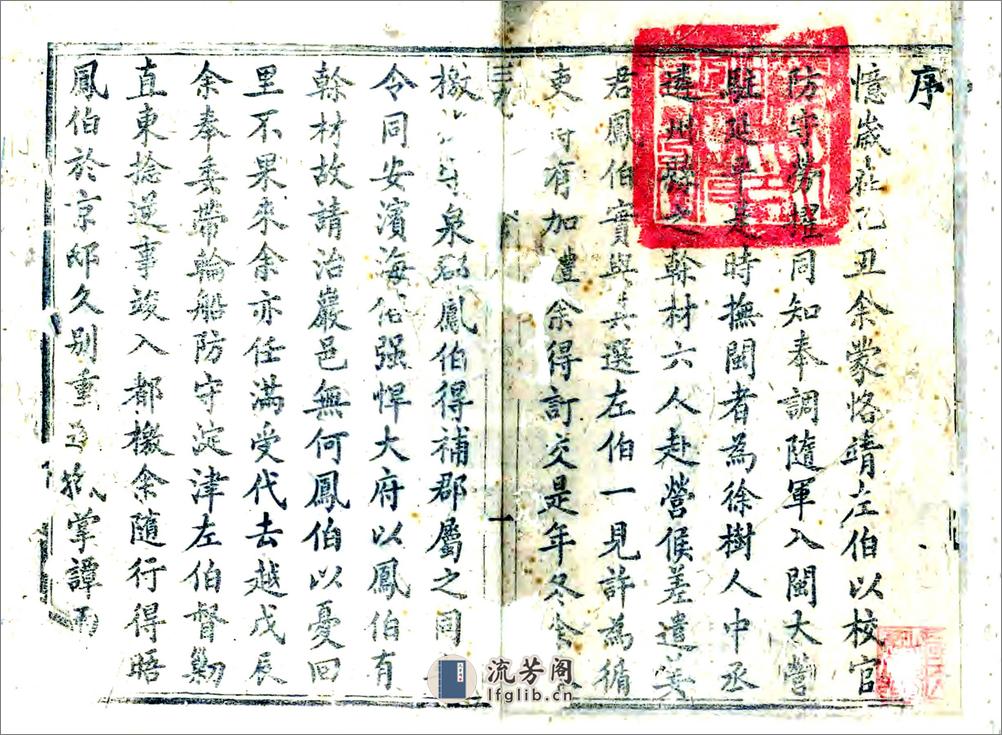 序
憶歲在乙丑余蒙恪靖左伯以校官
防守勞擢同知奉調隨軍入閩大營
駐延平是時撫閩者為徐樹人中丞
遴州縣之幹材六人赴營候差遣姜
君鳳伯實與其選左伯一見許為循
吏 有加禮余得訂交是年冬
檄 泉 鳳伯得補郡屬之同
令同安濱海俗强悍大府以鳳伯有
幹材故請治巖邑無何鳳伯以憂回
里不果來余亦任滿受代去越戊辰
余奉委帶輪船防守淀津左伯督勦
直東捻逆事竣入都檄余隨行得晤
鳳伯於京邸久别重 掌譚
流芳阁
lfglib.cn